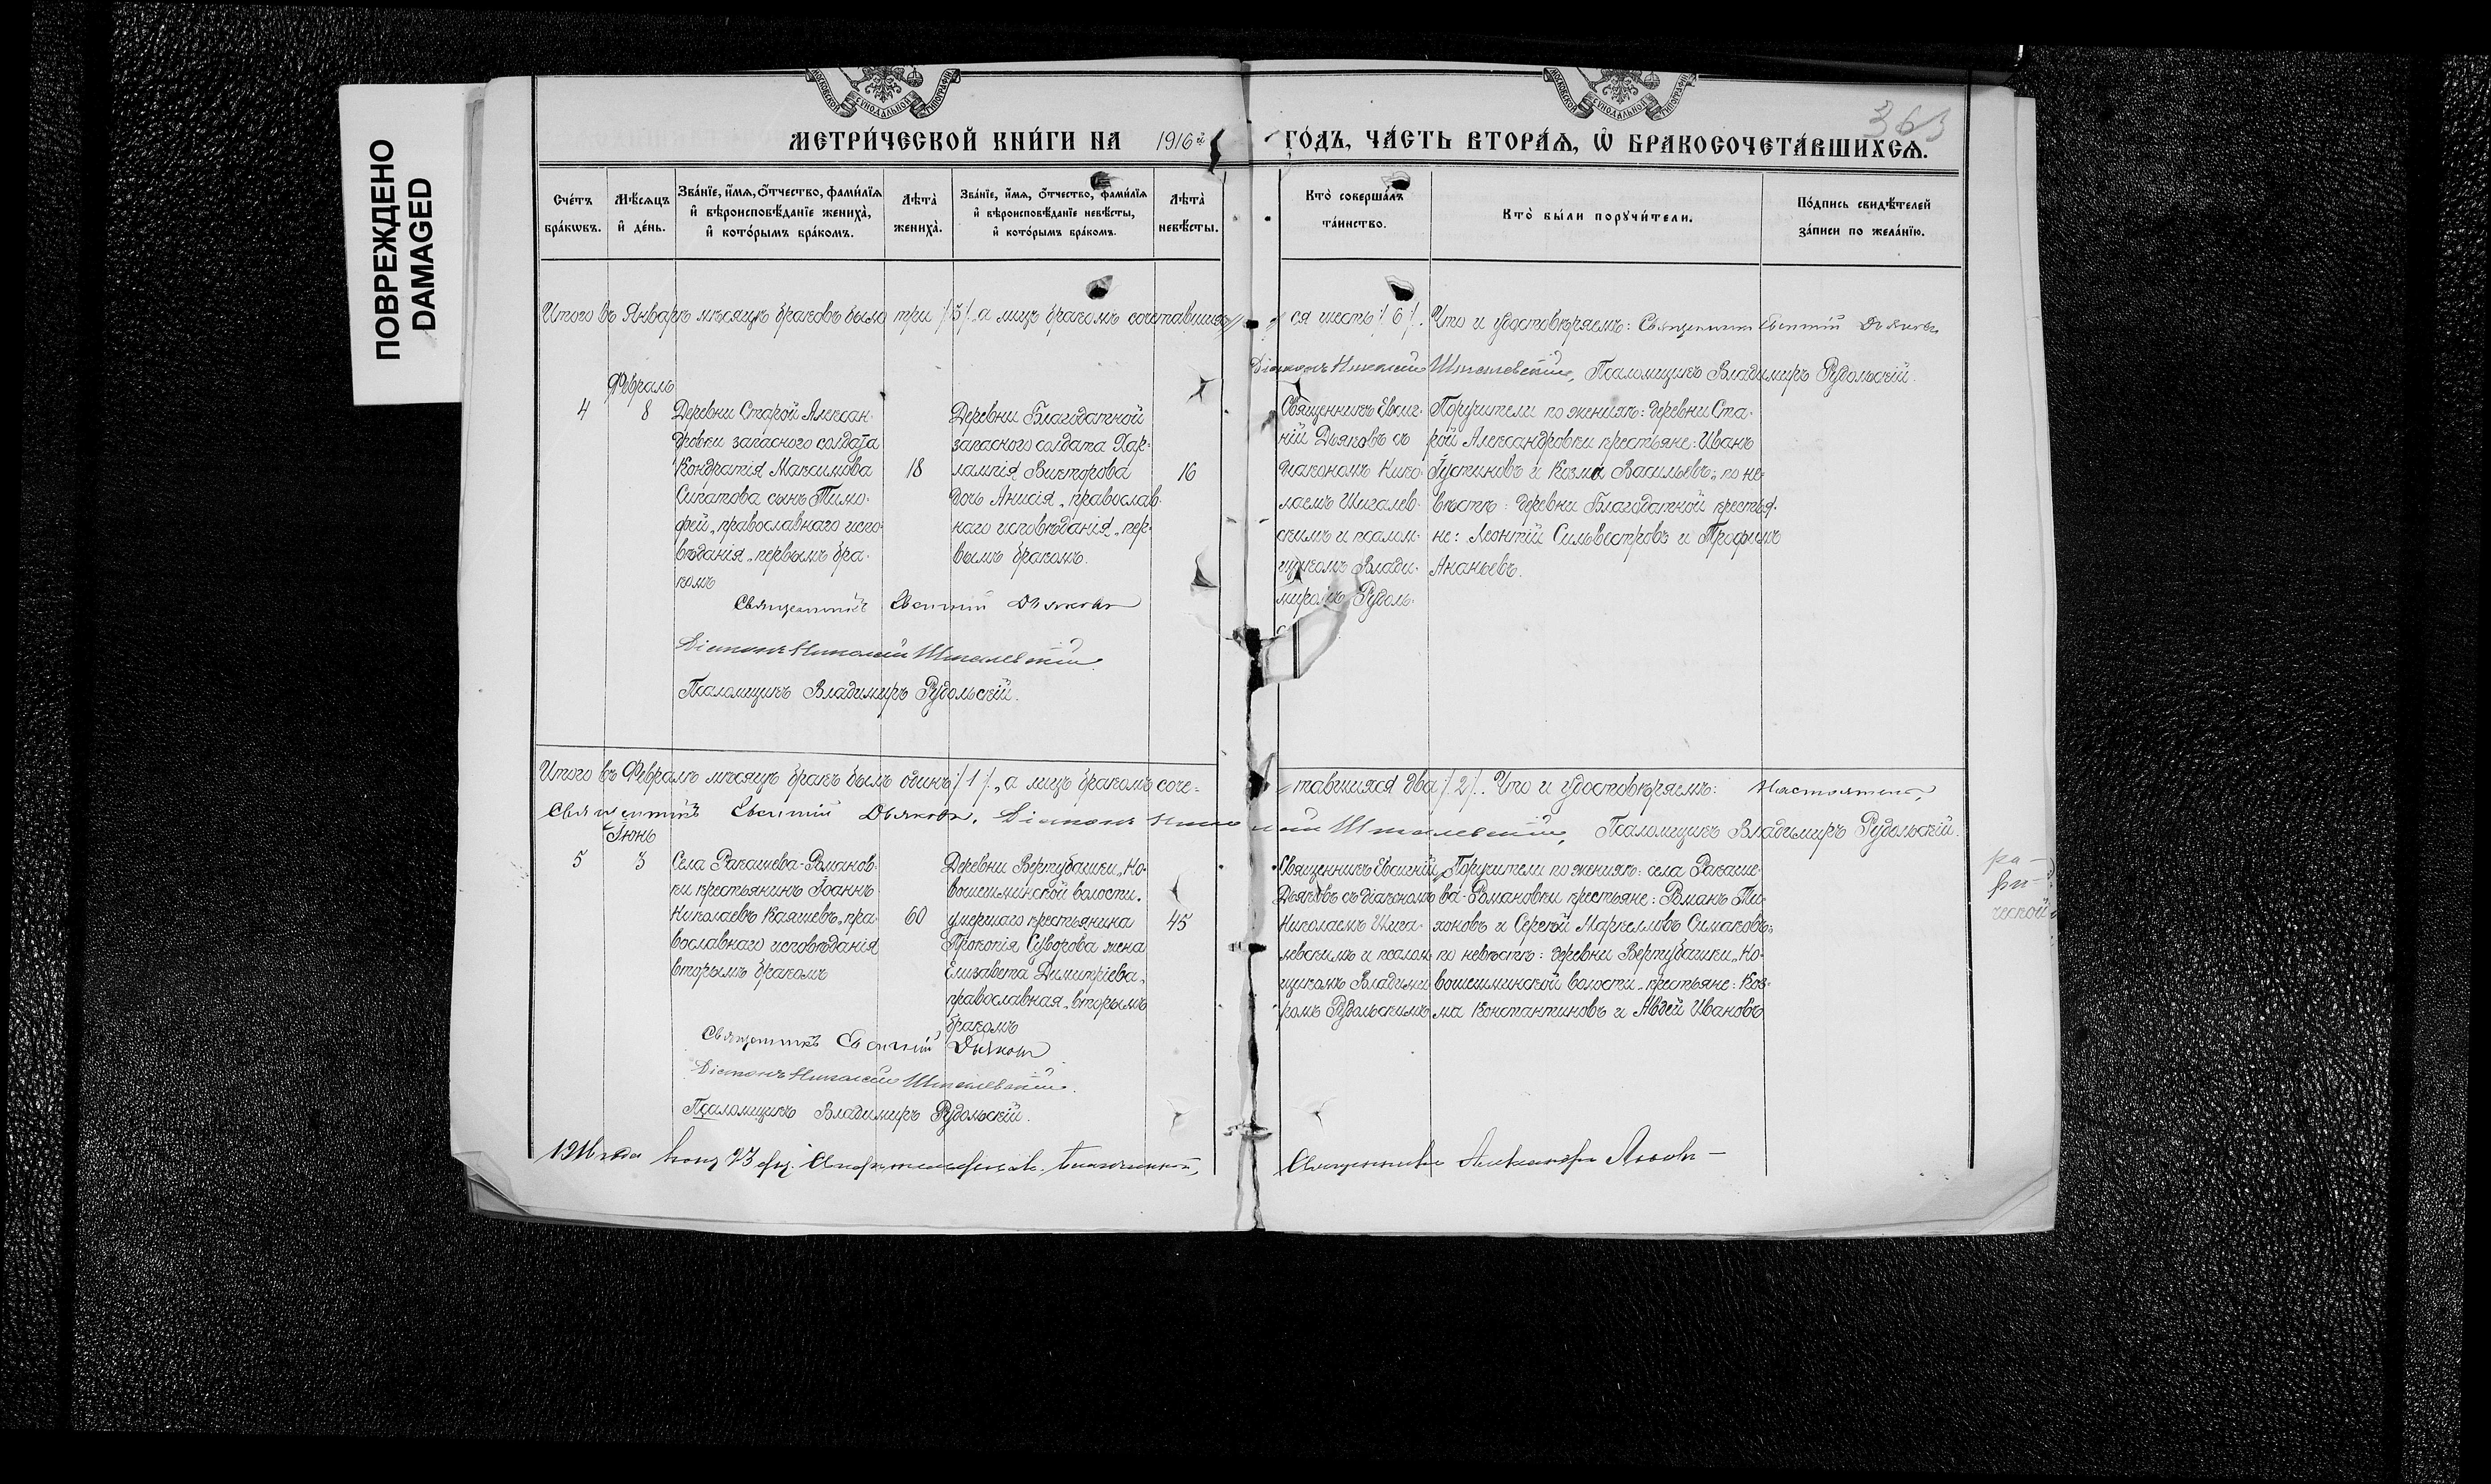 ПОВРЕЖДЕНО
DAMAGED
МОСКОВСКОЙ СУНОДАЛЬНОЙ ТИПОГРАФІИ
МОСКОВСКОЙ СУНОДАЛЬНОЙ ТИПОГРАФІИ
363
МЕТРИ́ЧЕСКОЙ КНИ́ГИ НА 1916й ГО́ДЪ, ЧА́СТЬ ВТОРА́Ѧ, Ѽ БРАКОСОЧЕТА́ВШИХСѦ.
Сче́тъ бра́кωвъ.
Мѣ́сѧцъ и҆ де́нь.
Зва́нїе, и҆́мѧ, ѻ҆́тчество, фамилїѧ
и҆ вѣроисповѣ́данїе жениха̀,
и҆ кото́рымъ бра́комъ.
Лѣта̀ жениха̀.
Зва́нїе, и҆́мѧ, ѻ҆́тчество, фамилїѧ
и҆ вѣроисповѣ́данїе невѣ́сты,
и҆ кото́рымъ бра́комъ.
Лѣта̀ невѣ́сты.
Кто̀ соверша́лъ
та́инство.
Кто̀ бы́ли порꙋчи́тели.
По́дпись свидѣ́телей
за́писи по жела́нїю.
Итого въ Январѣ мѣсяцѣ браковъ было три /3/. а лицъ бракомъ сочетавших- ся шесть /6/. Что и удостовѣряемъ: Священникъ Евгений Дьяковъ
Діаконъ Николай Шигалевскій, Псаломщикъ Владимиръ Рудольскій.
Февраль
4 8
Деревни Старой Алексан-
дровки запасного солдата
Кондратія Максимова
Сипатова сынъ Тимо-
фей, православнаго испо-
вѣданія, первымъ бра-
комъ
18
Деревни Благодатной
запасного солдата Хар-
лампія Викторова
дочь Анисія, православ-
наго исповѣданія, пер-
вымъ бракомъ.
16
Священникъ Евге-
ній Дьяковъ съ
діакономъ Нико-
лаемъ Шигалев-
скимъ и псалом-
щикомъ Влади-
миромъ Рудоль-
Поручители по женихѣ: деревни Ста-
рой Александровки крестьяне: Иванъ
Іустиновъ и Козма Васильевъ; по не-
вѣстѣ: деревни Благодатной крестья-
не: Леонтій Сильвестровъ и Трофимъ
Ананьевъ.
Священникъ Евгений Дьяковъ
Діаконъ Николай Шигалевскій
Псаломщикъ Владимиръ Рудольскій.
Итого въ Февралѣ мѣсяцѣ бракъ былъ одинъ /1/., а лицъ бракомъ соче- тавшихся два /2/. Что и удостовѣряемъ: Настоятель,
Священникъ Евгений Дьяковъ. Діаконъ Николай Шигалевскій, Псаломщикъ Владимиръ Рудольскій.
Іюнь
5 3
Села Ракашева-Романов-
ки крестьянинъ Іоаннъ
Николаевъ Каяшевъ, пра-
вославнаго исповѣданія
вторымъ бракомъ
60
Деревни Вертубашки, Но-
вошешминской волости,
умершаго крестьянина
Прокопія Суворова жена
Елизавета Димитріева,
православная, вторымъ
бракомъ
45
Священникъ Евгеній
Дьяковъ съ діакономъ
Николаемъ Шига-
левскимъ и псалом-
щикомъ Владими-
ромъ Рудольскимъ
Поручители по женихѣ: села Ракаше-
ва-Романовки крестьяне: Романъ Ти-
хоновъ и Сергѣй Маркелловъ Симаковъ;
по невѣстѣ: деревни Вертубашки, Но-
вошешминской волости, крестьяне: Коз-
ма Константиновъ и Авдей Ивановъ
Священникъ Евгений Дьяковъ
Діаконъ Николай Шигалевскій.
Псаломщикъ Владимиръ Рудольскій.
1916 года
Священникъ Александръ